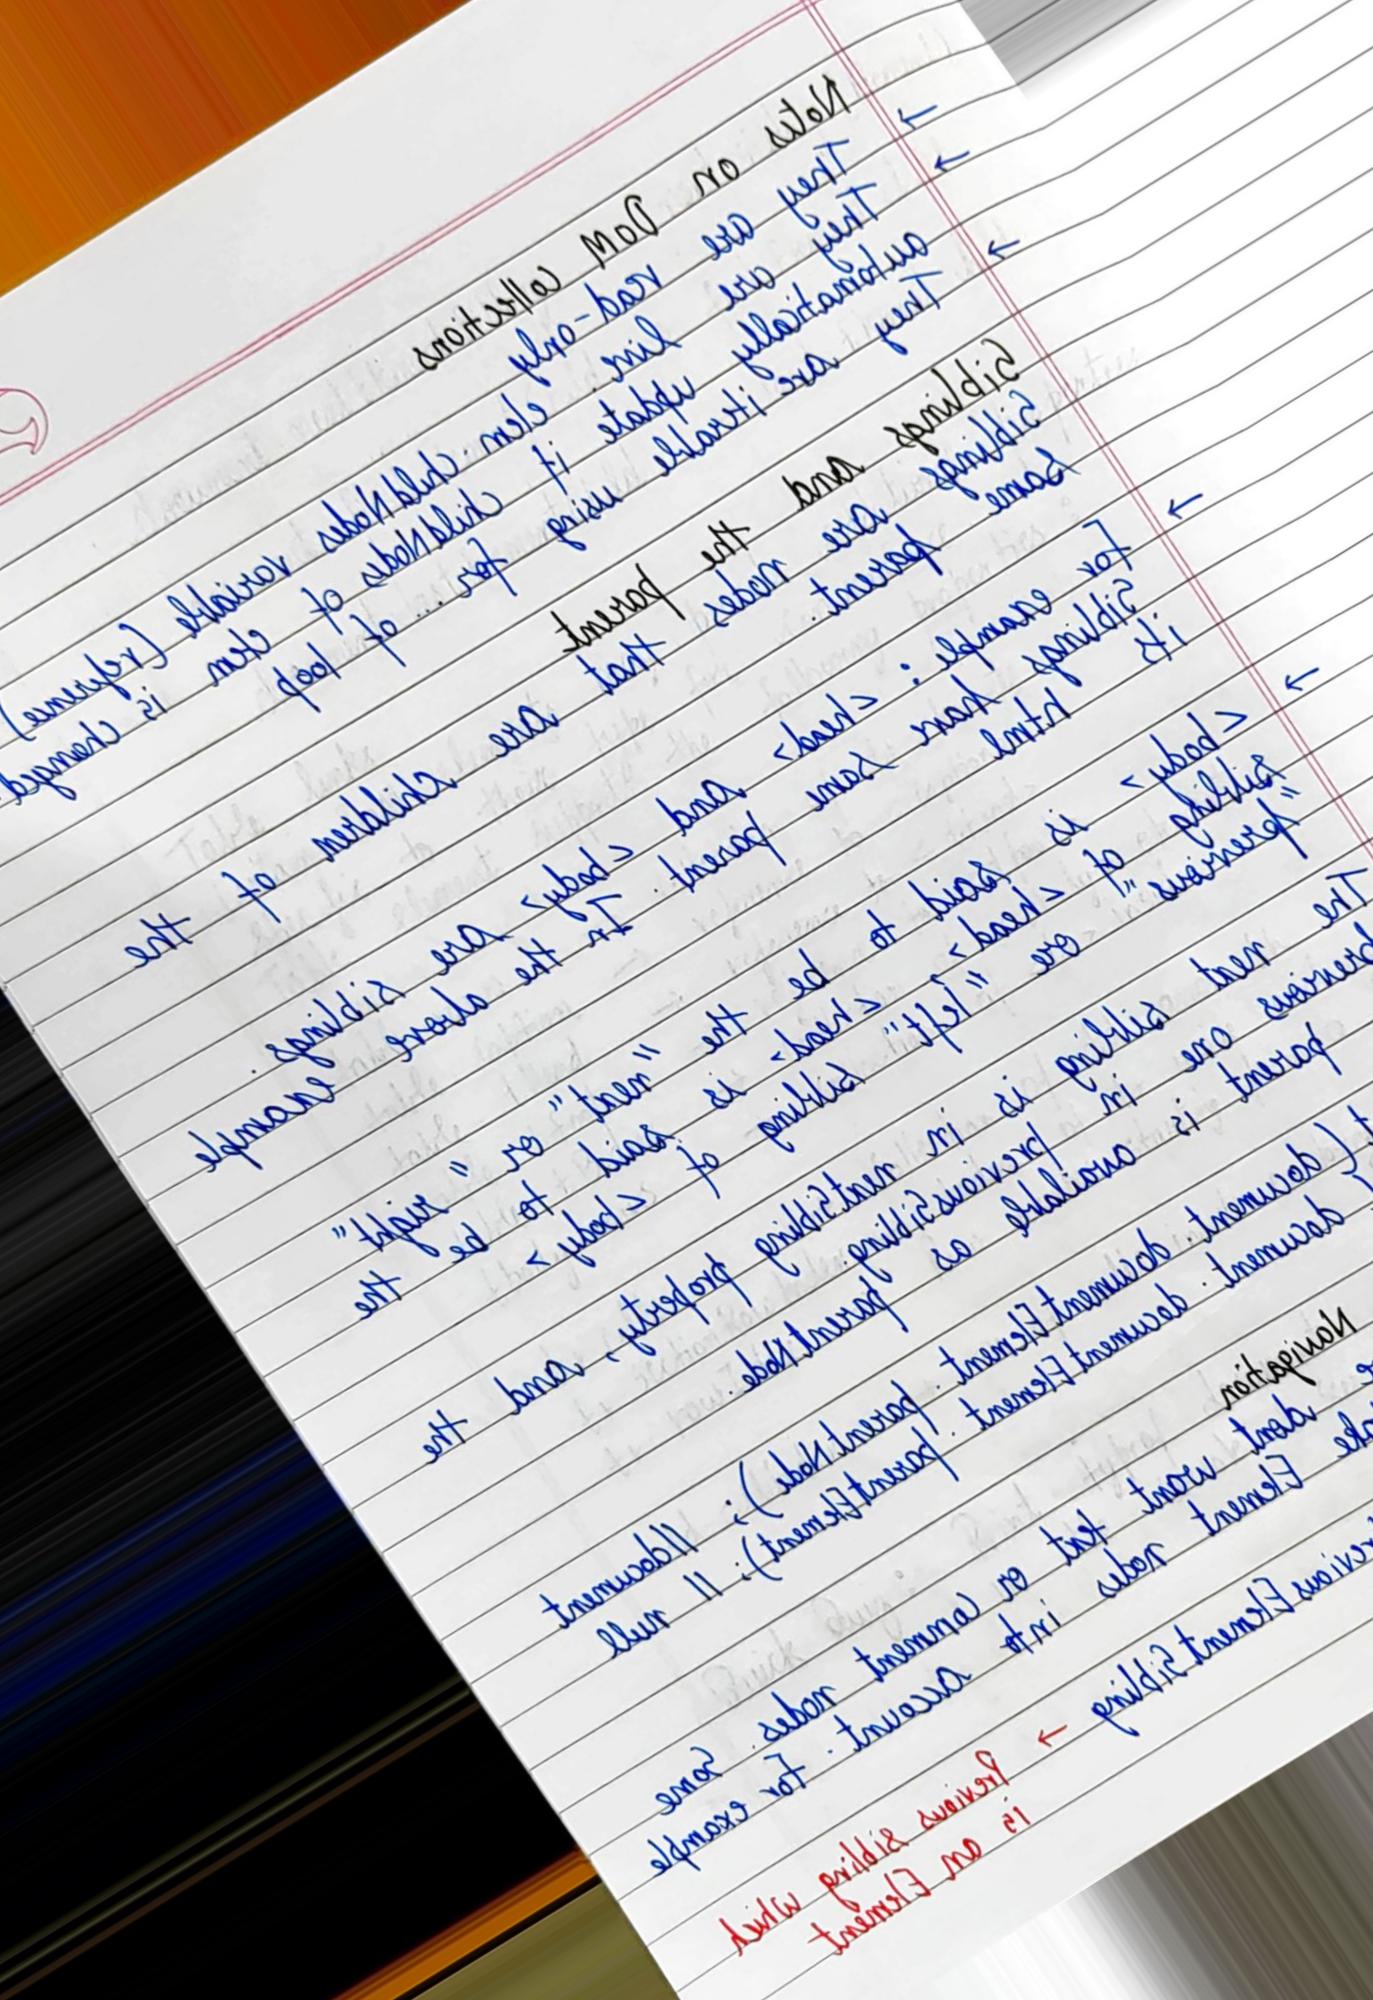 Notes on DOM collections
→ They are read-only
→ They are live. elem.childNodes variable (reference)
automatically update if childNodes of elem is changed
→ They are iterable using for... of loop
Siblings and the parent
Siblings are nodes that are children of the
same parent.
→ for example: <head> and <body> are siblings.
Siblings have same parent. In the above example
its html
→ <body> is said to be the "next" or "right"
sibling of <head>, <head> is said to be the
"previous" or "left" sibling of <body>
The next sibling is in nextSibling property, and the
previous one in previousSibling.
parent is available as parentNode.
(document.documentElement.parentNode); //document
document.documentElement.parentElement); // null
Navigation
dont want text or comment nodes. Some
Element nodes into account. for example
previousElementSibling → Previous sibling which
is an Element